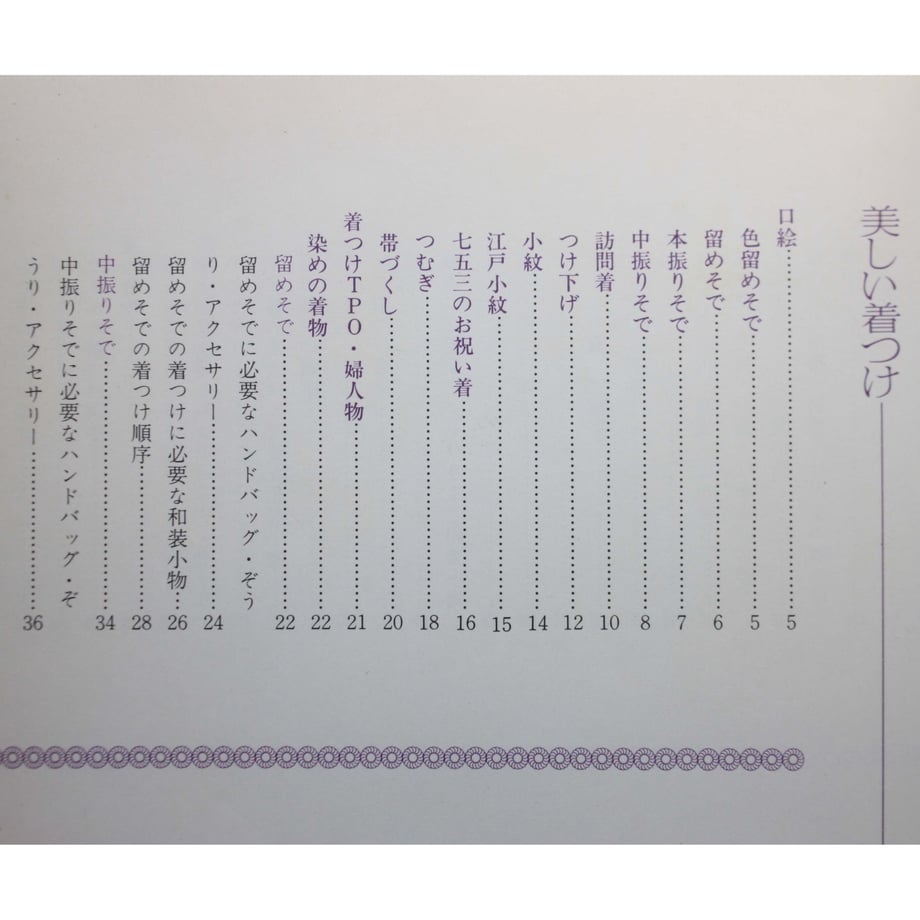 美しい着つけ
口絵……5
色留めそで……5
留めそで……6
本振りそで……7
中振りそで……8
訪問着……10
つけ下げ……12
小紋……14
江戸小紋……15
七五三のお祝い着……16
つむぎ……18
帯づくし……20
着つけTPO・婦人物……21
染めの着物……22
留めそで……22
留めそでに必要なハンドバッグ・ぞう
り・アクセサリー……24
留めそでの着つけに必要な和装小物…26
留めそでの着つけ順序……28
中振りそで……34
中振りそでに必要なハンドバッグ・ぞ
うり・アクセサリー……36